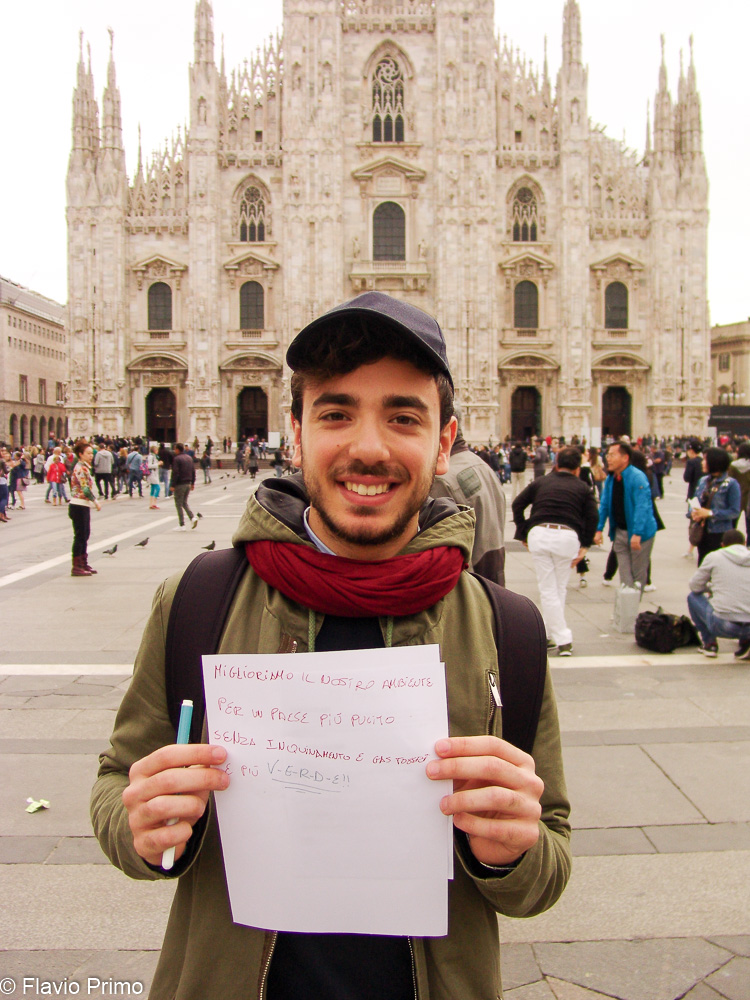 MIGLIORIAMO IL NOSTRO AMBIENTE
PER UN PAESE PIÙ PULITO
SENZA INQUINAMENTO E GAS TOSSICI
E PIÙ V-E-R-D-E!!
© Flavio Primo